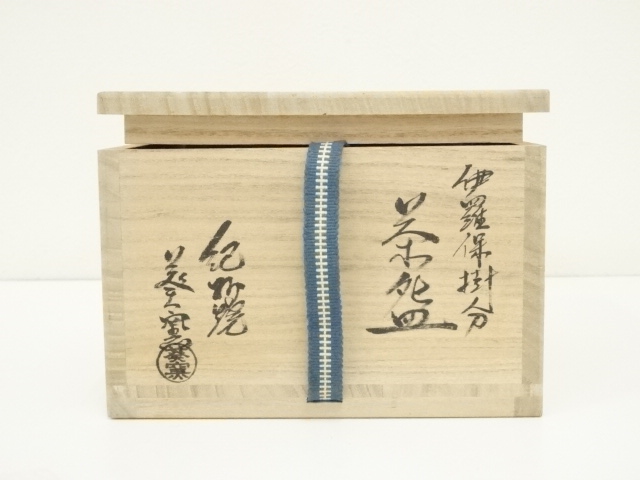 伊羅保掛分
茶盌
紀州焼
葵窯